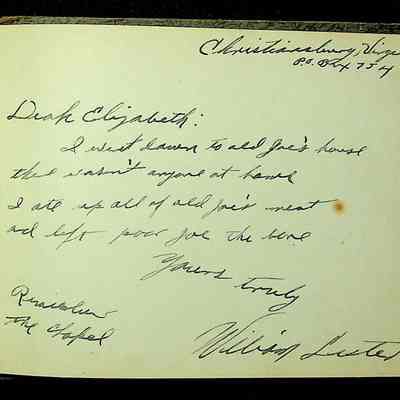 Christiansburg, Virgi
P.O. Box 754
Dear Elizabeth:
I went down to old Joe's house
there wasn't anyone at home
I ate up all of old Joe's meat
and left poor Joe the bone
Yours truly
Remember
the Chapel
William Lester